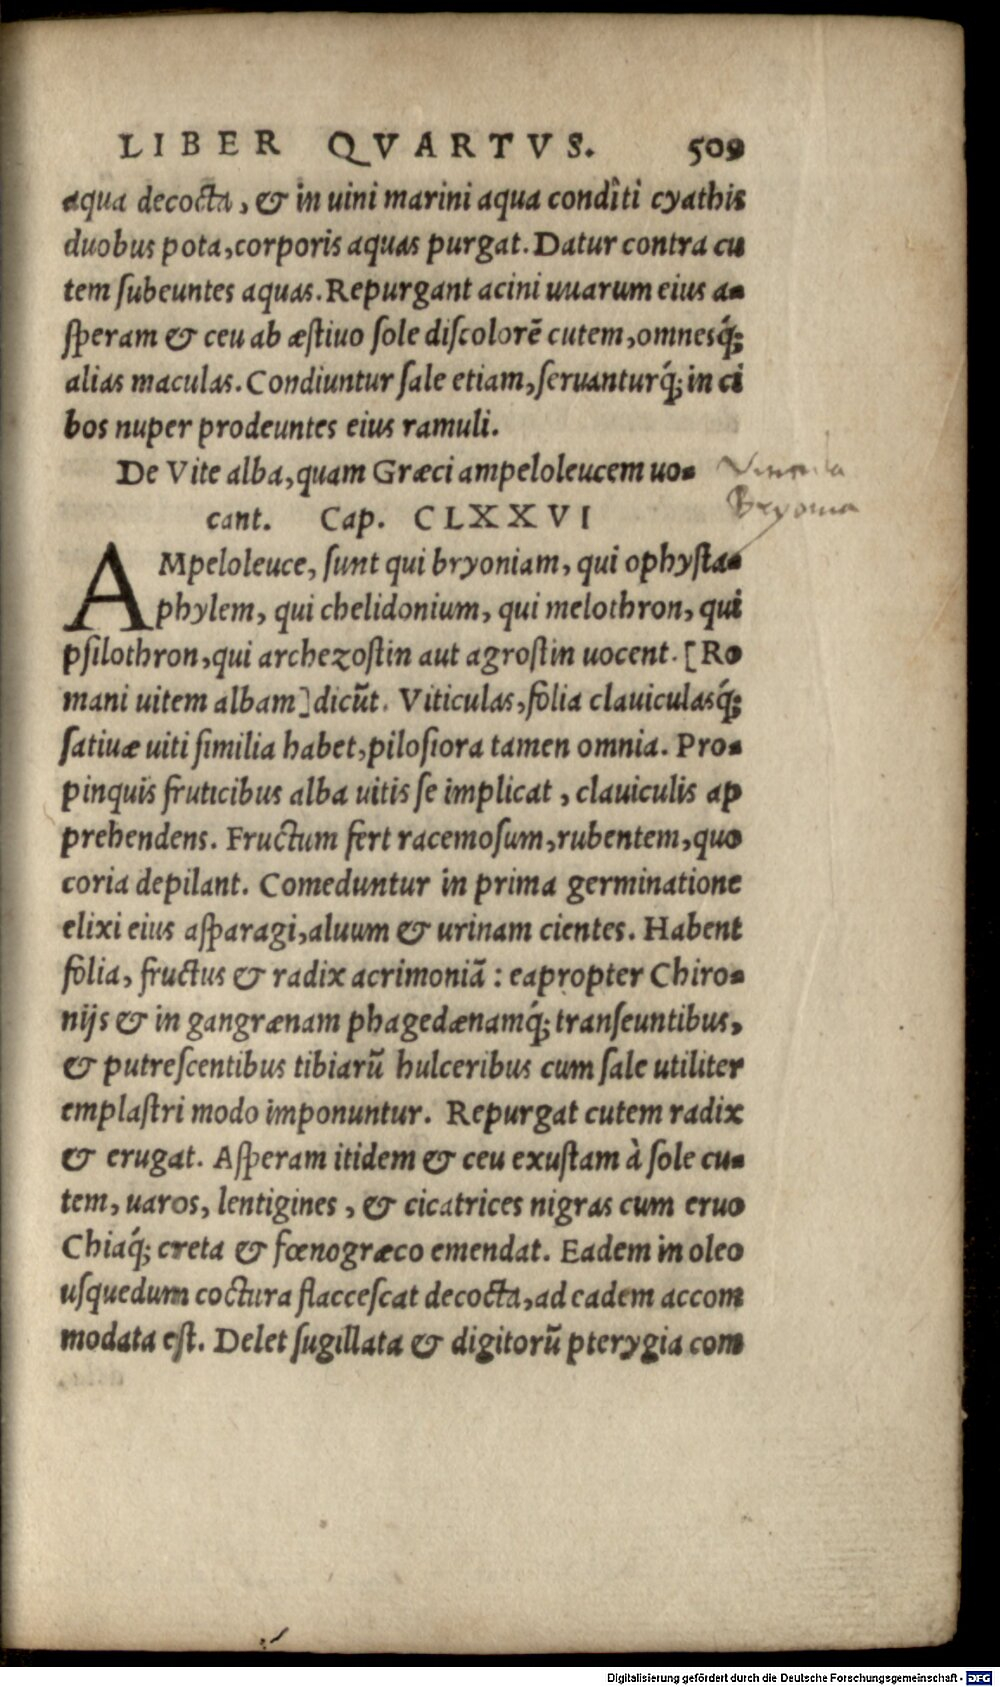 LIBER QVARTVS. 509
aqua decocta, & in uini marini aqua condîti cyathis
duobus pota, corporis aquas purgat. Datur contra cu
tem subeuntes aquas. Repurgant acini uuarum eius a-
speram & ceu ab æstiuo sole discolorẽ cutem, omnesq́;
alias maculas. Condiuntur sale etiam, seruanturq́; in ci
bos nuper prodeuntes eius ramuli.
De Vite alba, quam Græci ampeloleucem uo-
cant. Cap. CLXXVI
Bryonia
AMpeloleuce, sunt qui bryoniam, qui ophysta-
phylem, qui chelidonium, qui melothron, qui
psilothron, qui archezostin aut agrostin uocent. [Ro
mani uitem albam] dicũt. Viticulas, folia clauiculasq́;
satiuæ uiti similia habet, pilosiora tamen omnia. Pro-
pinquis fruticibus alba uitis se implicat, clauiculis ap
prehendens. Fructum fert racemosum, rubentem, quo
coria depilant. Comeduntur in prima germinatione
elixi eius asparagi, aluum & urinam cientes. Habent
folia, fructus & radix acrimoniã: eapropter Chiro-
nijs & in gangrænam phagedænamq́; transeuntibus,
& putrescentibus tibiarũ hulceribus cum sale utiliter
emplastri modo imponuntur. Repurgat cutem radix
& erugat. Asperam itidem & ceu exustam à sole cu-
tem, uaros, lentigines, & cicatrices nigras cum eruo
Chiaq́; creta & fœnogræco emendat. Eadem in oleo
usquedum coctura flaccescat decocta, ad eadem accom
modata est. Delet sugillata & digitorũ pterygia com
Digitalisierung gefördert durch die Deutsche Forschungsgemeinschaft - DFG